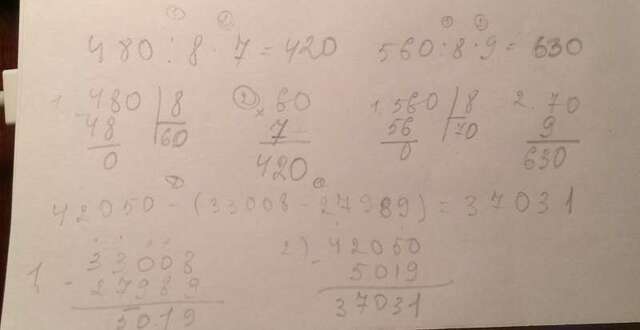 480 : 8 · 7 = 420
560 : 8 · 9 = 630
1. 480 | 8
48 60
0
2) × 60
7
420
1. 560 | 8
56 70
0
2. 70
9
630
42050 - (33008 - 27989) = 37031
1) 33008
- 27989
5019
2) 42050
- 5019
37031